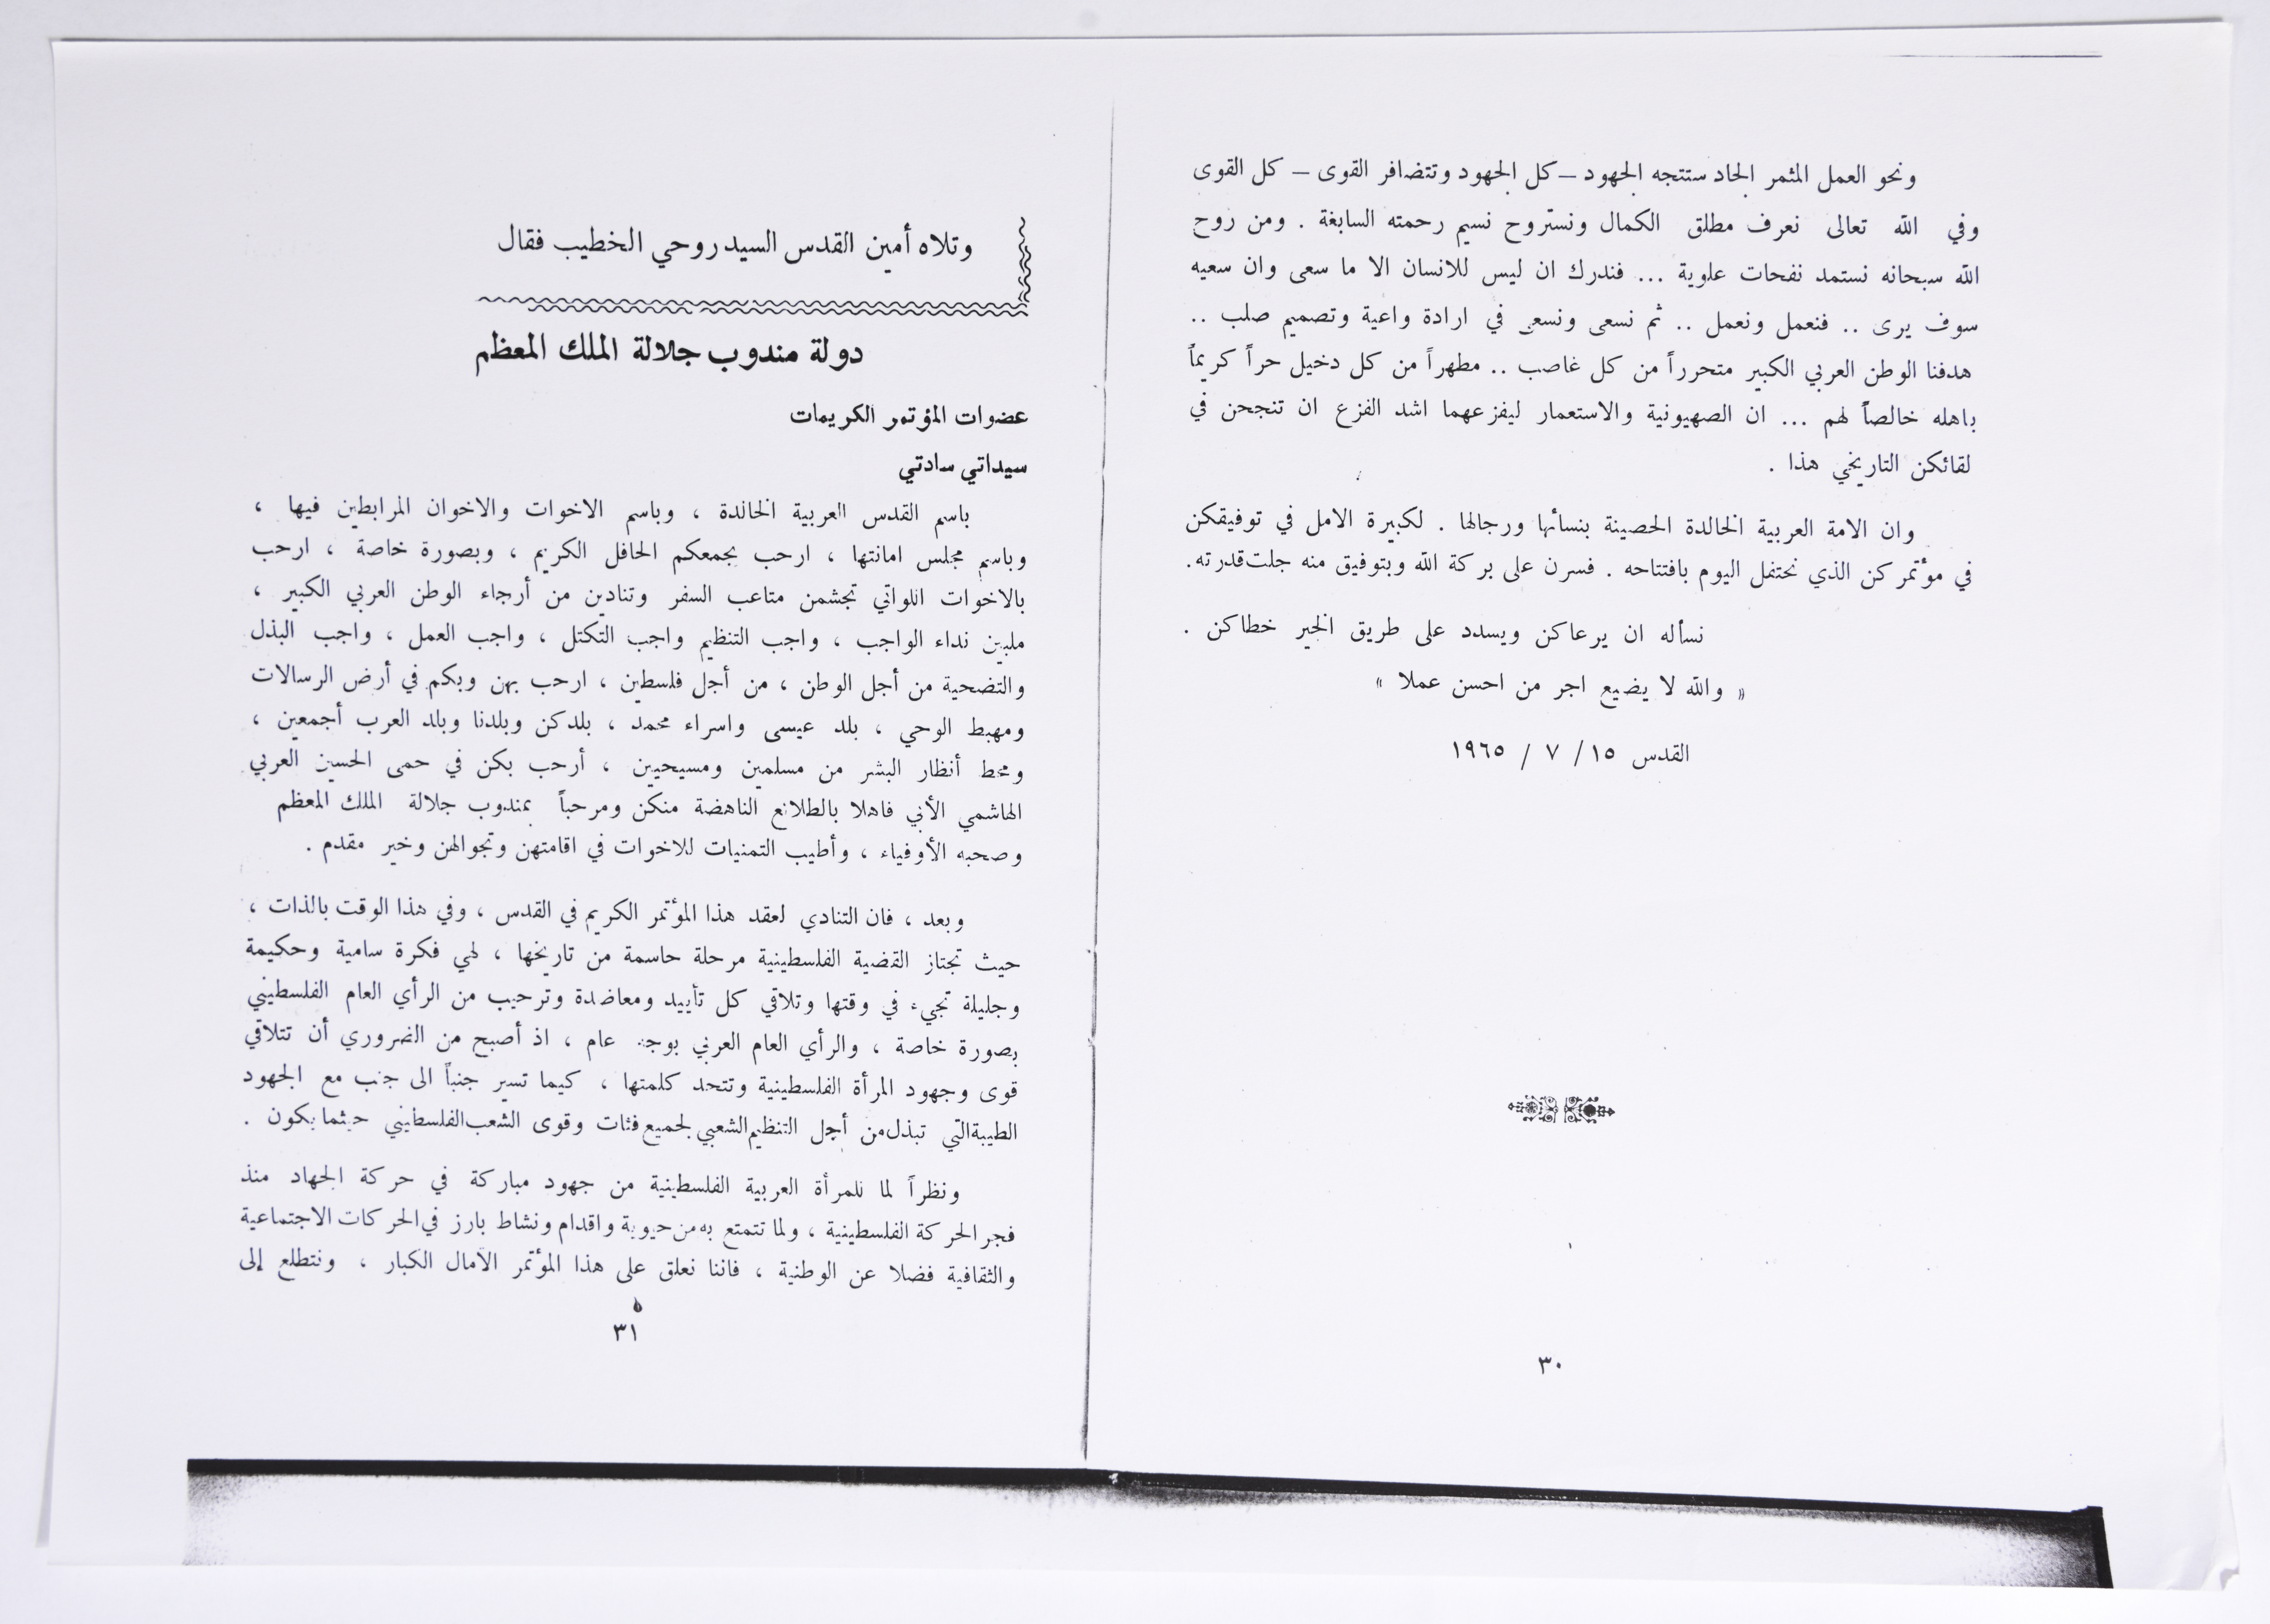 ونحو العمل المثمر الجاد ستتجه الجهود – كل الجهود وتتضافر القوى – كل القوى
وفي الله تعالى نعرف مطلق الكمال ونستروح نسيم رحمته السابغة . ومن روح
الله سبحانه نستمد نفحات علوية ... فندرك ان ليس للانسان الا ما سعى وان سعيه
سوف يرى .. فنعمل ونعمل .. ثم نسعى ونسعى في ارادة واعية وتصميم صلب ..
هدفنا الوطن العربي الكبير متحرراً من كل غاصب .. مطهراً من كل دخيل حراً كريماً
باهله خالصاً لهم ... ان الصهيونية والاستعمار ليفزعهما اشد الفزع ان تنجحن في
لقائكن التاريخي هذا .
وان الامة العربية الخالدة الحصينة بنسائها ورجالها . لكبيرة الامل في توفيقكن
في مؤتمركن الذي نحتفل اليوم بافتتاحه . فسرن على بركة الله وبتوفيق منه جلت قدرته .
نسأله ان يرعاكن ويسدد على طريق الخير خطاكن .
« والله لا يضيع اجر من احسن عملا »
القدس ١٥ / ٧ / ١٩٦٥
٣٠
وتلاه أمين القدس السيد روحي الخطيب فقال
دولة مندوب جلالة الملك المعظم
عضوات المؤتمر الكريمات
سيداتي سادتي
باسم القدس العربية الخالدة ، وباسم الاخوات والاخوان المرابطين فيها ،
وباسم مجلس امانتها ، ارحب بجمعكم الحافل الكريم ، وبصورة خاصة ، ارحب
بالاخوات اللواتي تجشمن متاعب السفر وتنادين من أرجاء الوطن العربي الكبير ،
ملبين نداء الواجب ، واجب التنظيم واجب التكتل ، واجب العمل ، واجب البذل
والتضحية من أجل الوطن ، من أجل فلسطين ، ارحب بهن وبكم في أرض الرسالات
ومهبط الوحي ، بلد عيسى واسراء محمد ، بلدكن وبلدنا وبلد العرب أجمعين ،
ومحط أنظار البشر من مسلمين ومسيحيين ، أرحب بكن في حمى الحسين العربي
الهاشمي الأبي فاهلا بالطلائع الناهضة منكن ومرحباً بمندوب جلالة الملك المعظم
وصحبه الأوفياء ، وأطيب التمنيات للاخوات في اقامتهن وتجوالهن وخير مقدم .
وبعد ، فان التنادي لعقد هذا المؤتمر الكريم في القدس ، وفي هذا الوقت بالذات ،
حيث تجتاز القضية الفلسطينية مرحلة حاسمة من تاريخها ، لهي فكرة سامية وحكيمة
وجليلة تجيء في وقتها وتلاقي كل تأييد ومعاضدة وترحيب من الرأي العام الفلسطيني
بصورة خاصة ، والرأي العام العربي بوجه عام ، اذ أصبح من الضروري أن تتلاقي
قوى وجهود المرأة الفلسطينية وتتحد كلمتها ، كيما تسير جنباً الى جنب مع الجهود
الطيبة التي تبذل من أجل التنظيم الشعبي لجميع فئات وقوى الشعب الفلسطيني حيثما يكون .
ونظراً لما للمرأة العربية الفلسطينية من جهود مباركة في حركة الجهاد منذ
فجر الحركة الفلسطينية ، ولما تتمتع به من حيوية واقدام ونشاط بارز في الحركات الاجتماعية
والثقافية فضلا عن الوطنية ، فاننا نعلق على هذا المؤتمر الآمال الكبار ، ونتطلع إلى
٣١